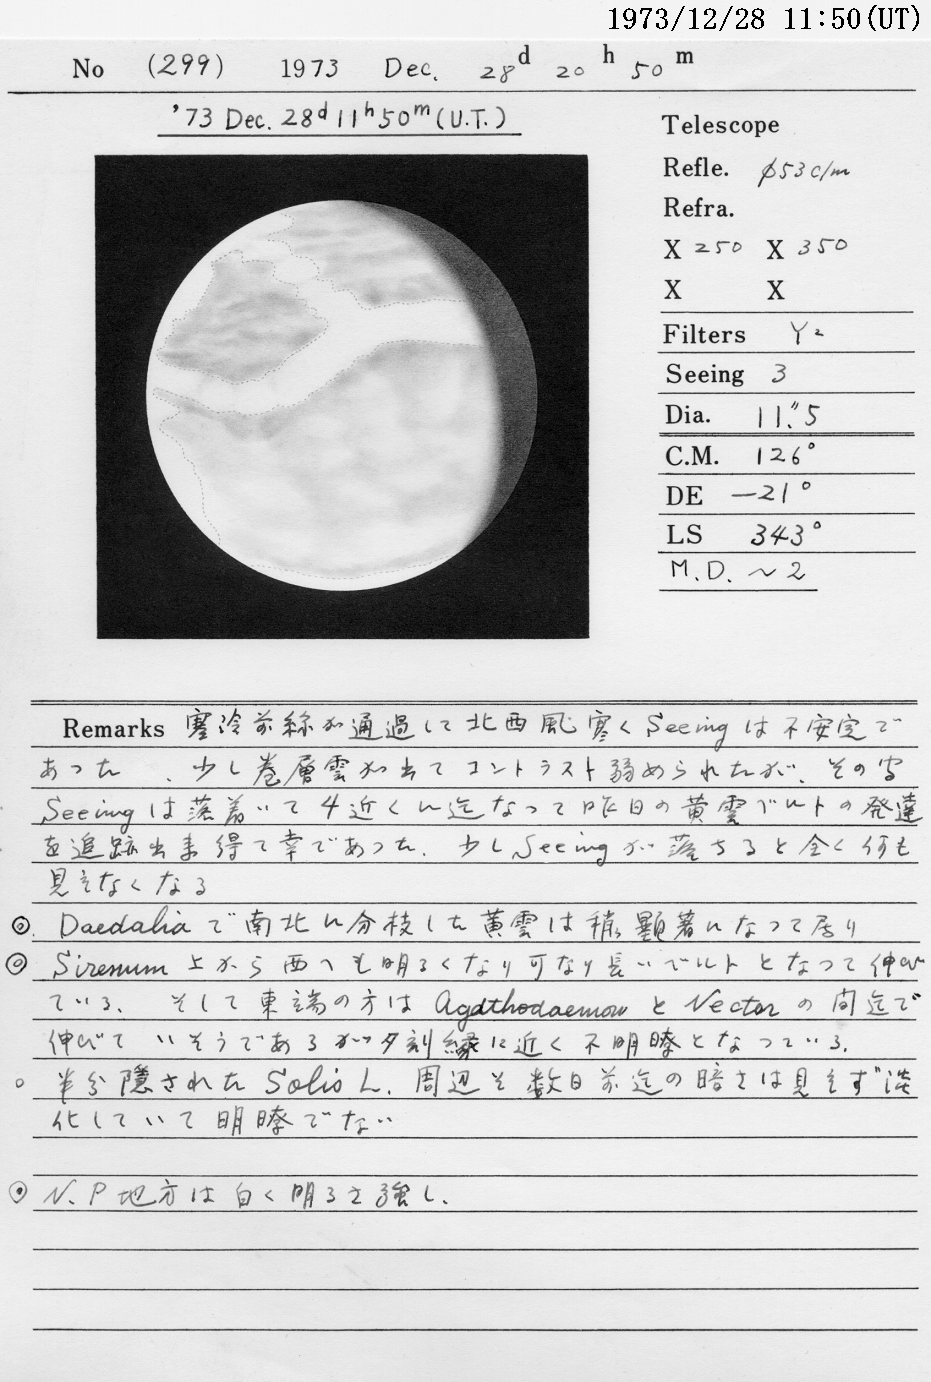 1973/12/28 11:50(UT)
No (299) 1973 Dec. 28d 20h 50m
'73 Dec. 28d 11h 50m (U.T.)
Telescope
Refle. φ53c/m
Refra.
X 250 X 350
X X
Filters Y2
Seeing 3
Dia. 11."5
C.M. 126°
DE −21°
LS 343°
M.D. ~2
Remarks 寒冷前線が通過して北西風寒くSeeingは不安定で
あった、少し巻層雲が出てコントラスト弱められたが、その
Seeingは落着いて4近くに迄なって昨日の黄雲ベルトの発達
を追跡出来得て幸であった. 少しSeeingが落ちると全く何も
見えなくなる
◎. Daedaliaで南北に分枝した黄雲は積顕著になって居り
◎ Sirenum上から西へも明るくなり可なり長いベルトとなって伸び
ている. そして東端の方はAgathodaemonとNectarの間迄で
伸びていそうであるが夕刻縁に近く不明瞭となっている.
○ 半分隠されたSolis L. 周辺も数日前迄の暗さは見えず淡
化していて明瞭でない
◎ N.P地方は白く明るさ強し.